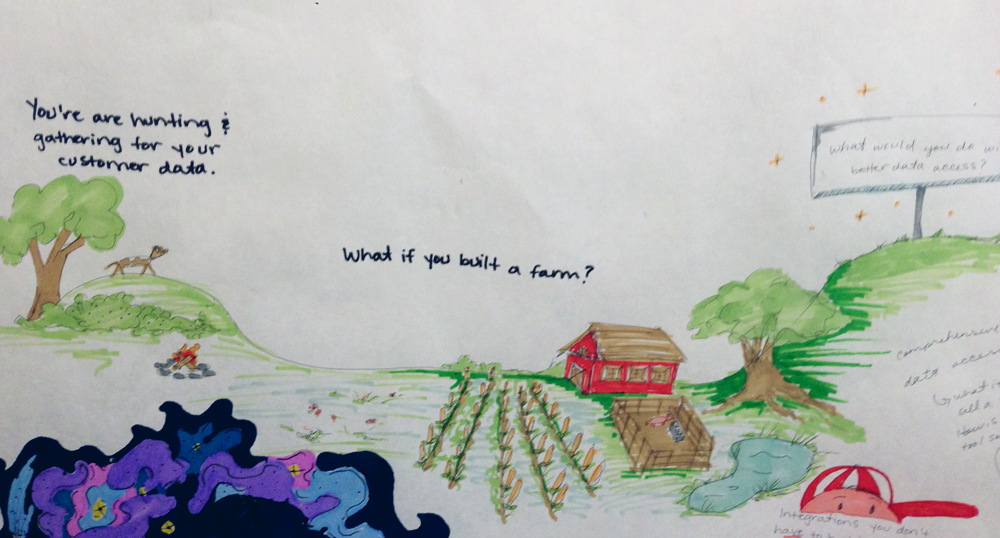 You're are hunting &
gathering for your
customer data.
What if you built a farm?
What would you do wi
better data access?
comprehensive
data access
what i
cell a
How is
tool so
Integrations you don't
have to